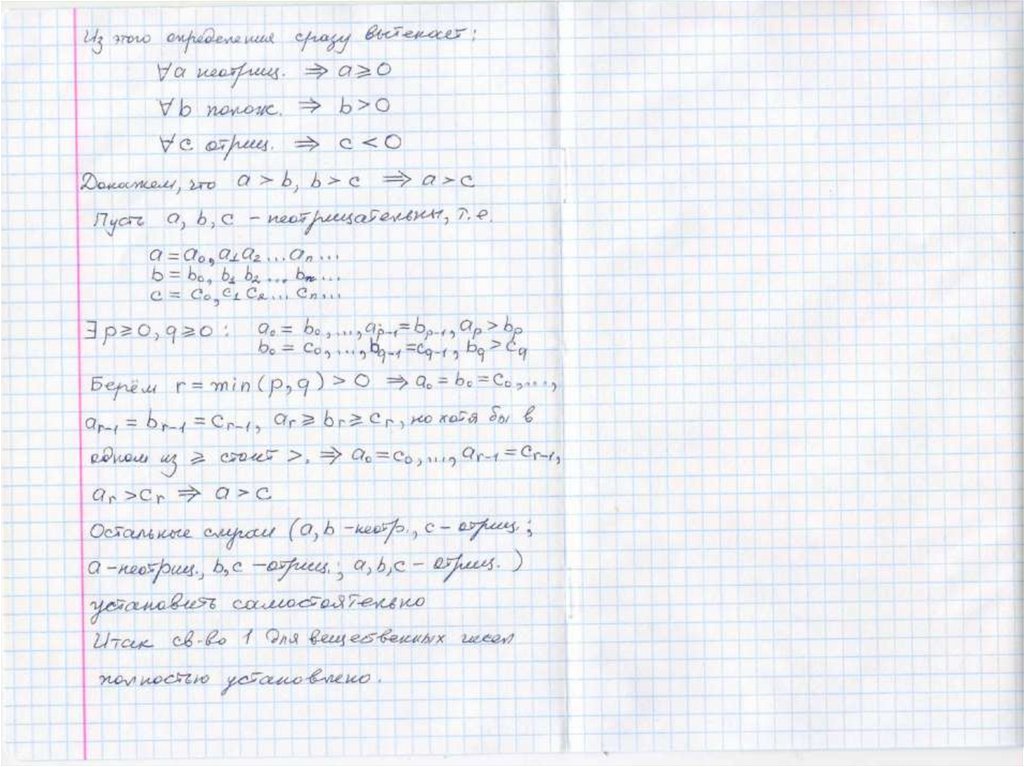 Из этого определения сразу вытекает:
∀a неотриц. ⇒ a ≥ 0
∀b полож. ⇒ b > 0
∀c отриц. ⇒ c < 0
Докажем, что a > b, b > c ⇒ a > c
Пусть a, b, c – неотрицательны, т.е.
a = a₀, a₁ a₂ ... aₙ ...
b = b₀, b₁ b₂ ... bₙ ...
c = c₀, c₁ c₂ ... cₙ ...
∃ p ≥ 0, q ≥ 0 : a₀ = b₀, ..., aₚ₋₁ = bₚ₋₁, aₚ > bₚ
b₀ = c₀, ..., b_{q-1} = c_{q-1}, b_q > c_q
Берём r = min(p, q) > 0 ⇒ a₀ = b₀ = c₀, ...,
aᵣ₋₁ = bᵣ₋₁ = cᵣ₋₁, aᵣ ≥ bᵣ ≥ cᵣ, но хотя бы в
одном из ≥ стоит >. ⇒ a₀ = c₀, ..., aᵣ₋₁ = cᵣ₋₁,
aᵣ > cᵣ ⇒ a > c
Остальные случаи (a, b – неотр., c – отриц.;
a – неотриц., b, c – отриц.; a, b, c – отриц.)
установить самостоятельно
Итак св-во 1 для вещественных чисел
полностью установлено.